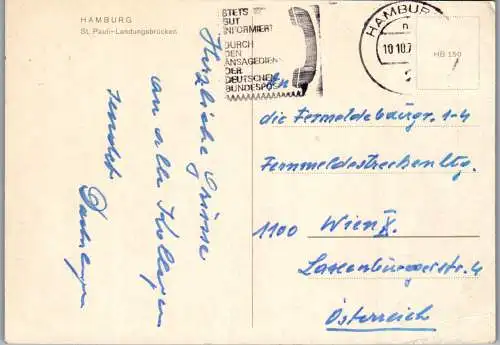 HAMBURG
St. Pauli-Landungsbrücken
STETS
GUT
INFORMIERT
DURCH
DEN
ANSAGEDIENST
DER
DEUTSCHEN
BUNDESPOST
HAMBURG
10.10.7
HB 150
Herzliche Grüsse
an alle Kollegen
sendet
An
die Fermeldebauzgr. 1-4
Fernmeldestreckenltg.
1100 Wien X.
Laxenburgerstr. 4
Österreich